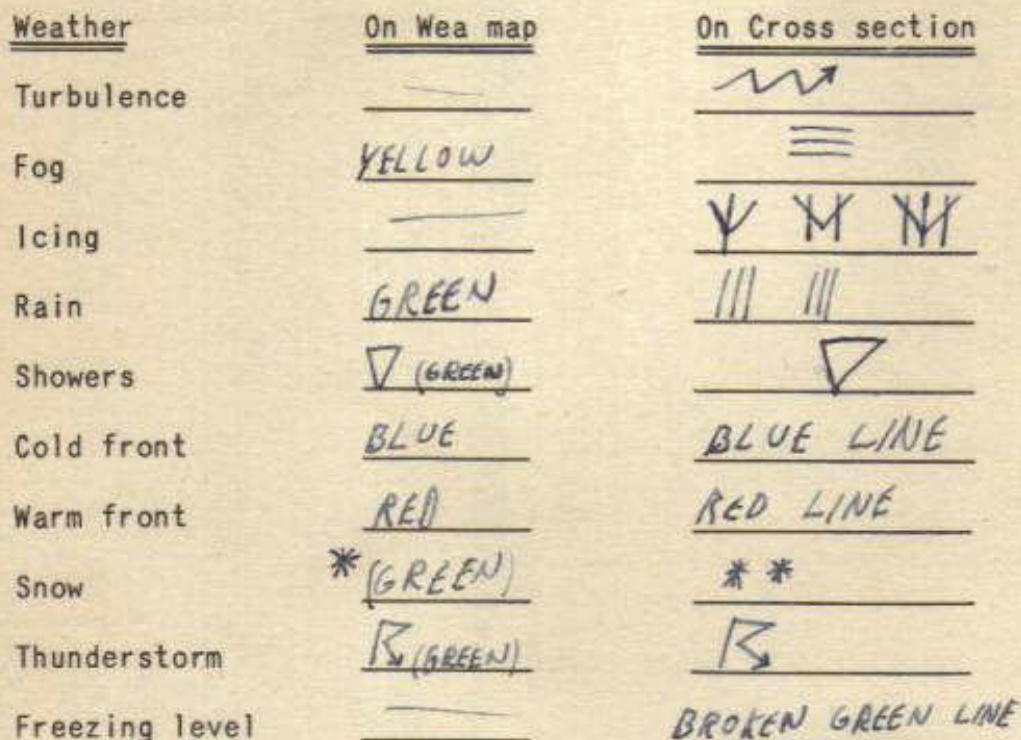 Weather On Wea map On Cross section
Turbulence
Fog YELLOW
Icing
Rain GREEN
Showers (GREEN)
Cold front BLUE BLUE LINE
Warm front RED RED LINE
Snow * (GREEN) * *
Thunderstorm (GREEN)
Freezing level BROKEN GREEN LINE